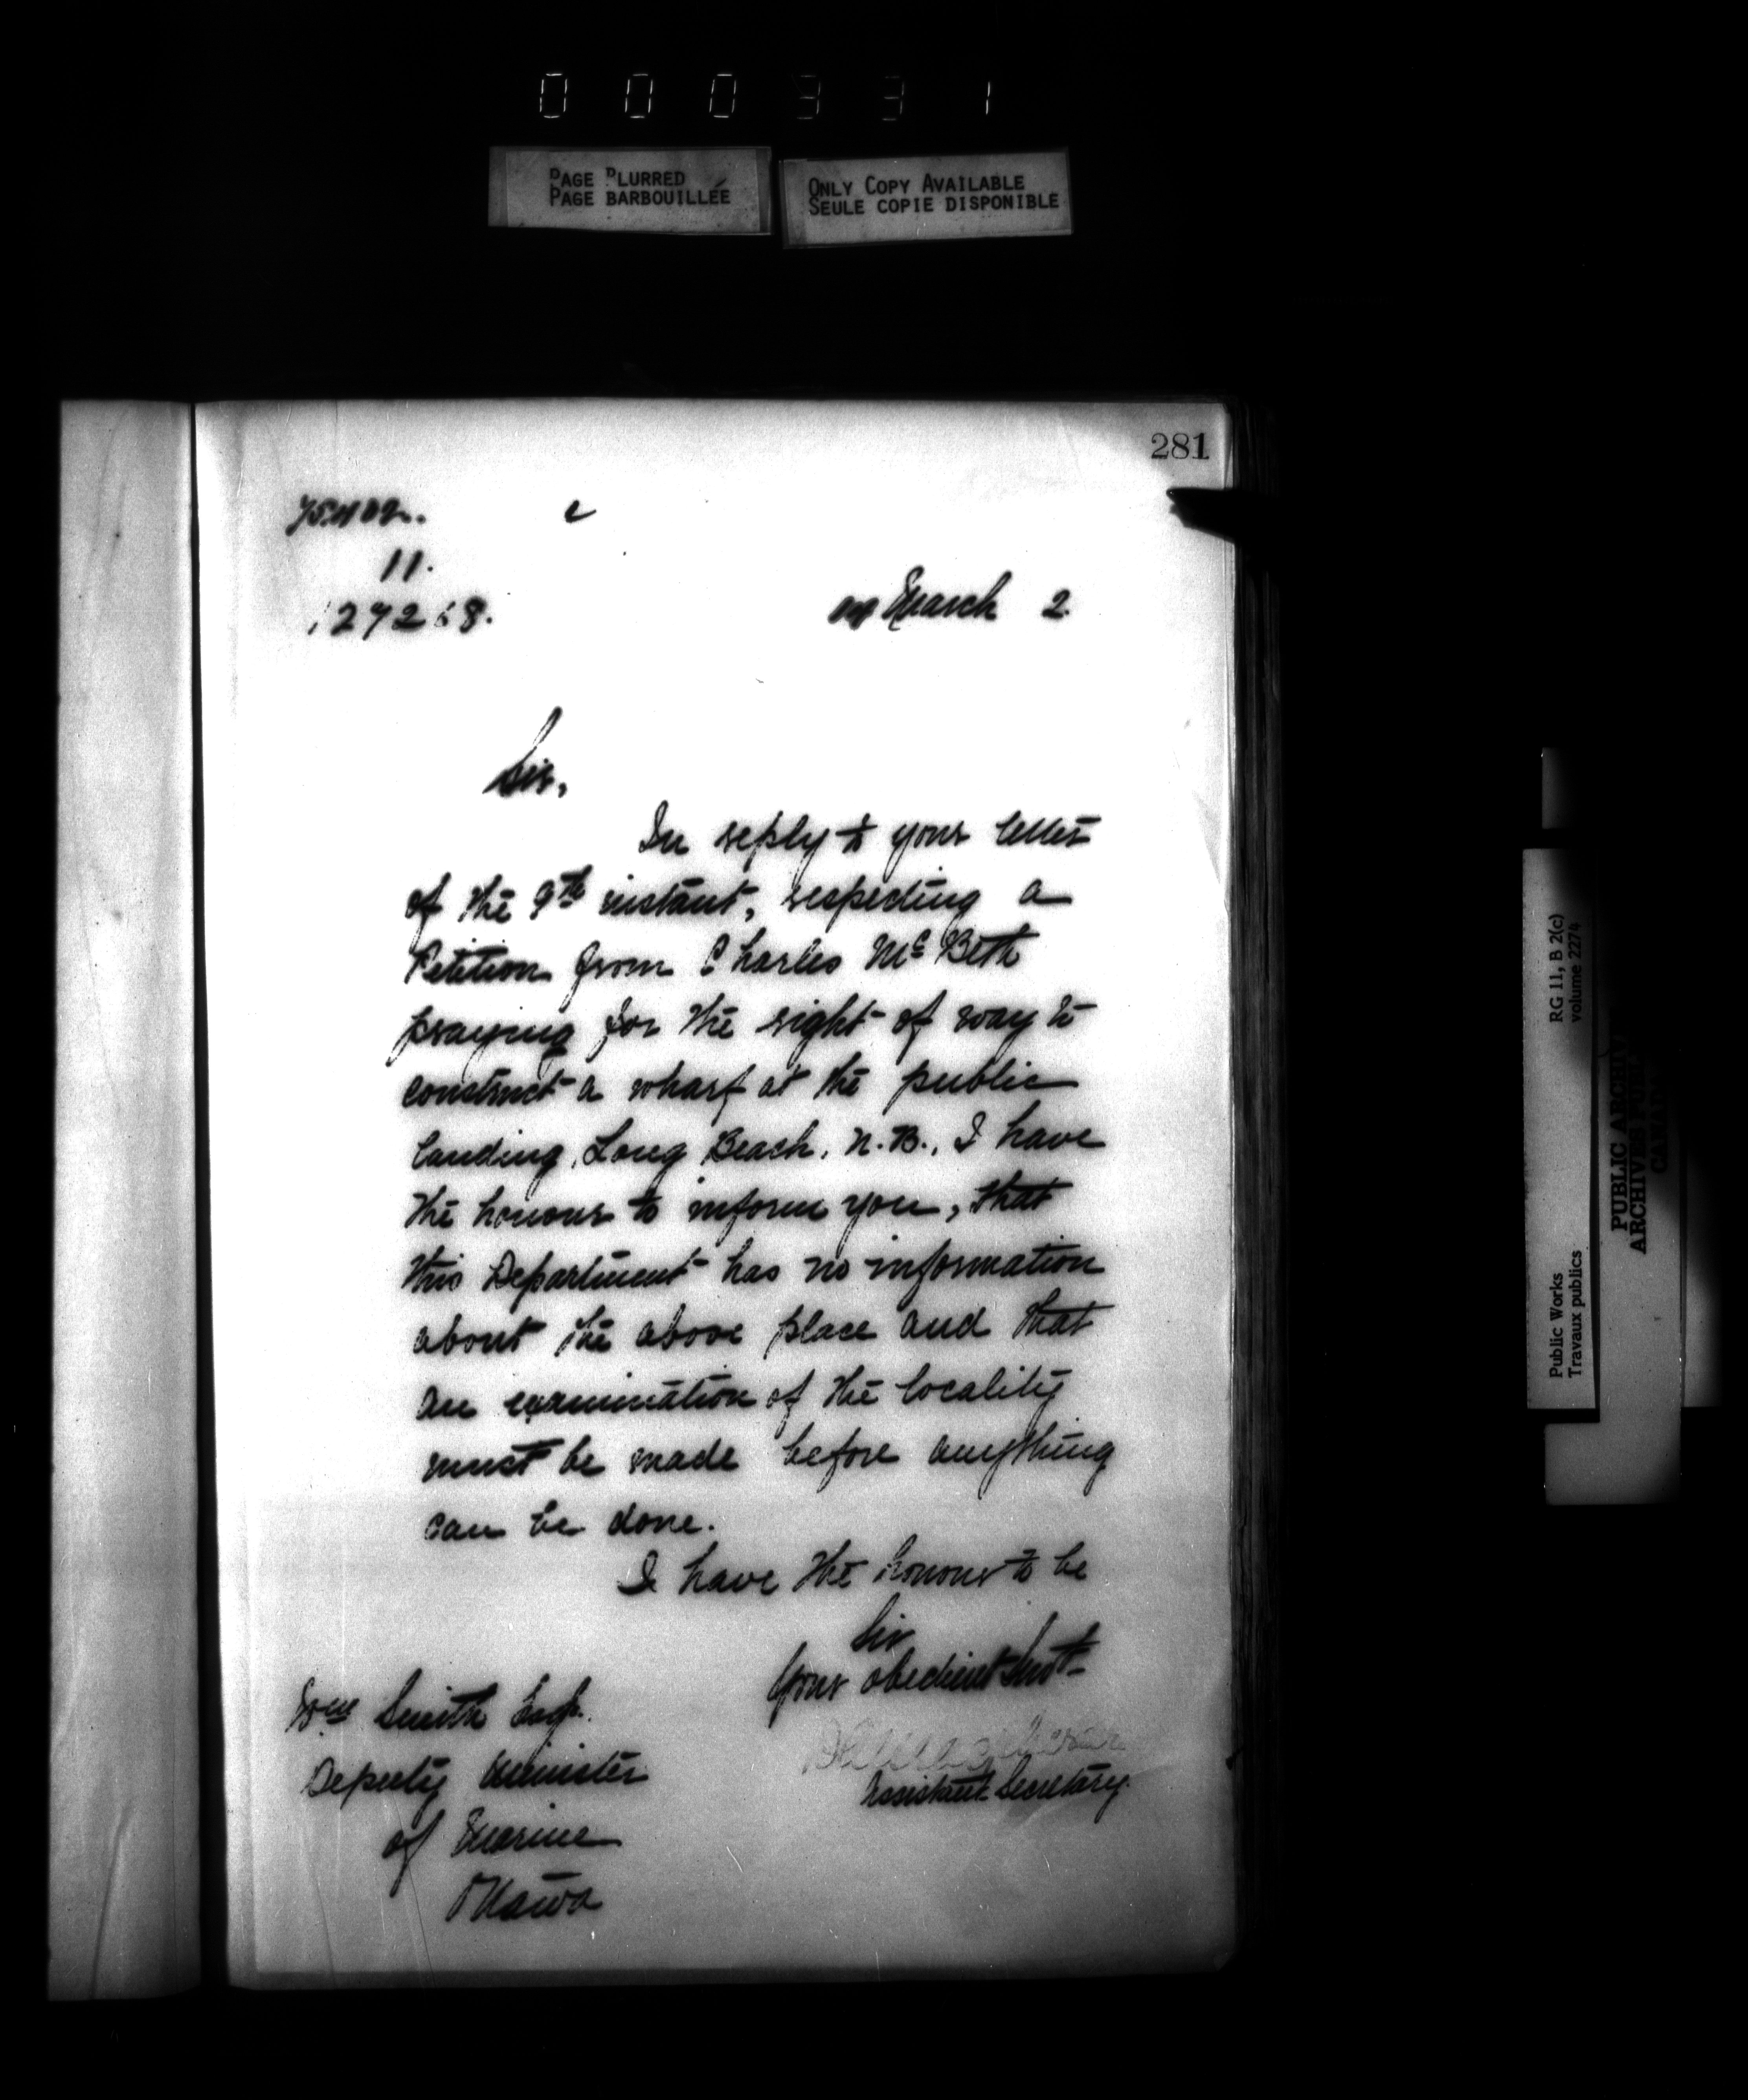 000331
PAGE BLURRED
PAGE BARBOUILLÉE
ONLY COPY AVAILABLE
SEULE COPIE DISPONIBLE
281
11.
March 2
Sir,
In reply to your letter
of the 9th instant, respecting a
Petition from Charles McBeth
praying for the right of way to
construct a wharf at the public
landing, Long Beach, N.B., I have
the honour to inform you, that
this Department has no information
about the above place and that
an examination of the locality
must be made before anything
can be done.
I have the honour to be
Sir
Your obedient Servt
Assistant Secretary.
Wm Smith Esq.
Deputy Minister
of Marine
Ottawa
RG 11, B 2(c)
volume 2274
Public Works
Travaux publics
PUBLIC ARCHIV
ARCHIVES PUB
CANA